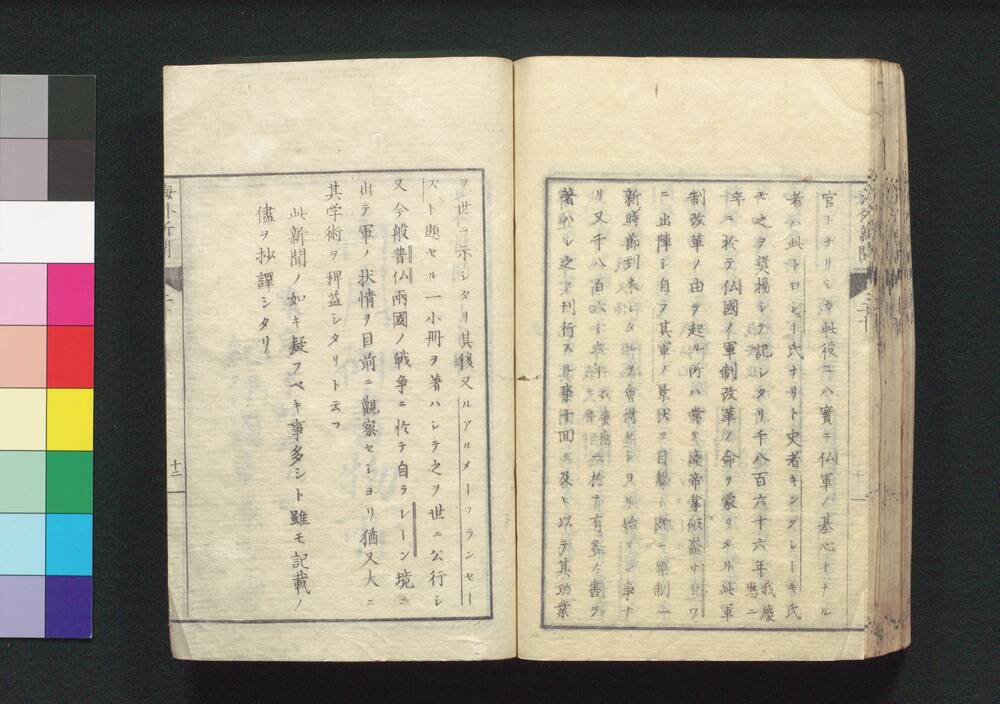 官トナリシカ此役ニハ實ニ仏軍ノ基心トナル
者ハ此トロシュー氏ナリト史者キングレーキ氏
モ之ヲ奨揚シテ記シタリ千八百六十六年我慶應二
年ニ於テ仏國ノ軍制改革ノ命ヲ蒙リタリ此軍
制改革ノ由テ起ル所ハ嘗テ廢帝拿破崙サドワ
ニ出陣シ自ラ其軍ノ景状ヲ目撃シ既ニ軍制一
新ノ時節到来シタルヲ會得セシヨリ始メシ事ナ
リ又千八百六十六年我慶應二年ニ於テ有名ノ書ヲ
著ハシ之ヲ刊行スル事十四ニ及ヒ以テ其功業
ヲ世ニ示シタリ其後又ルアルメーフランセー
ズト題セル一小冊ヲ著ハシテ之ヲ世ニ公行シ
又今般普仏兩國ノ戦争ニ於テ自ラレーン境ニ
出テ軍ノ状情ヲ目前ニ觀察セシヨリ猶又大ニ
其学術ヲ裨益シタリト云フ
此新聞ノ如キ疑フベキ事多シト雖モ記載ノ
儘ヲ抄譯シタリ
海外新聞
十二